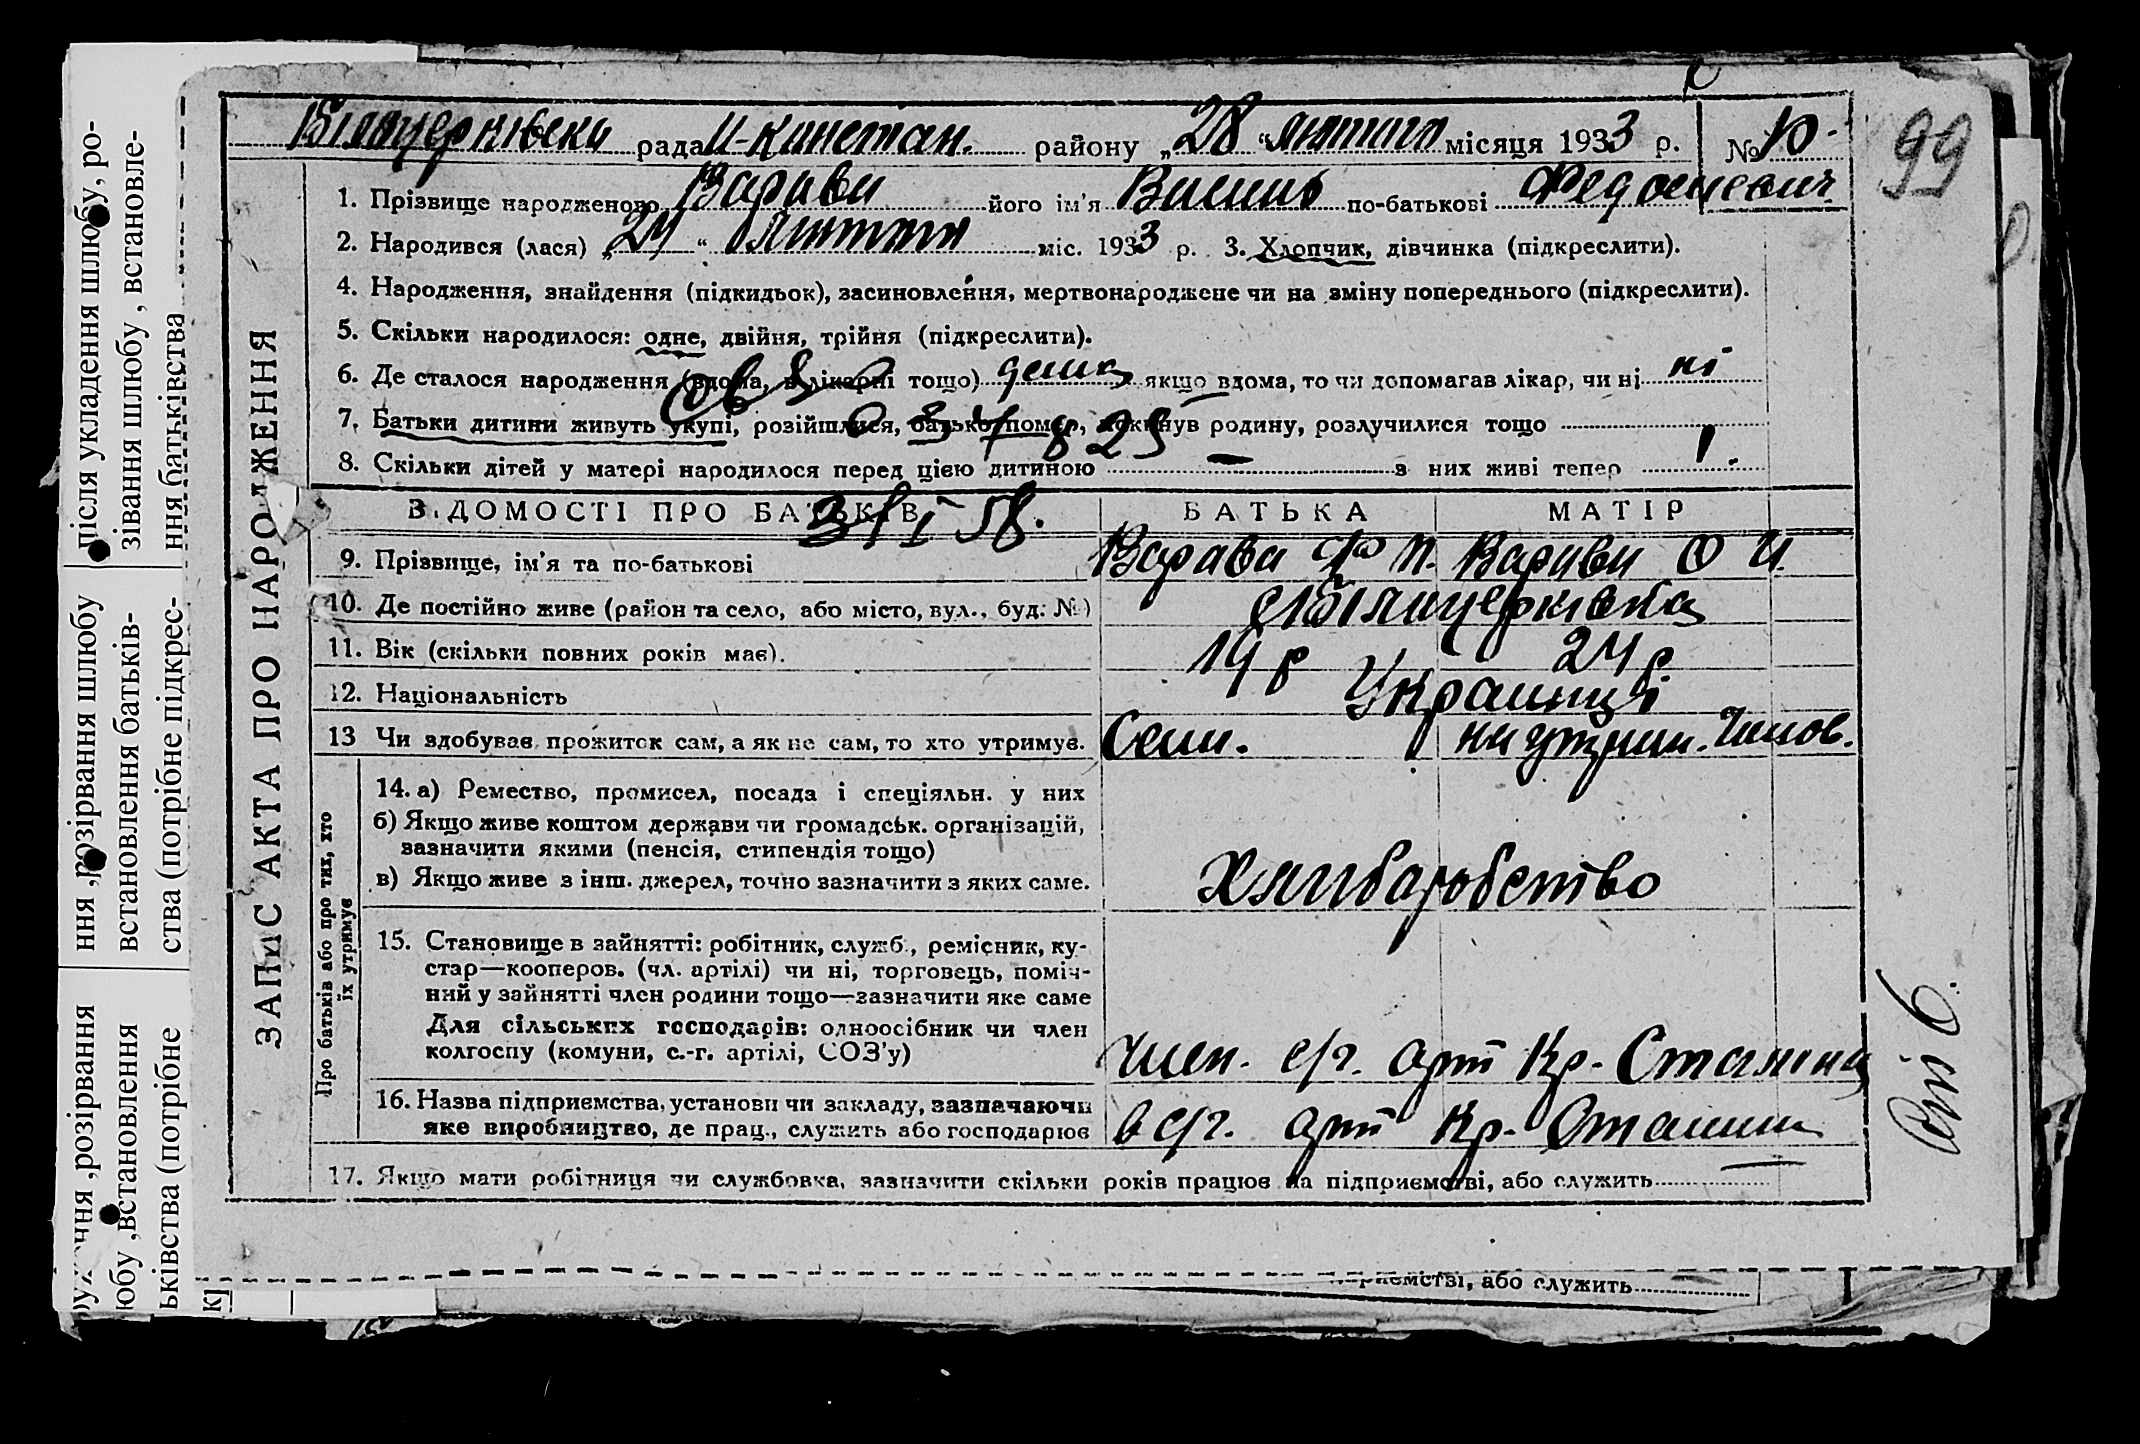 99
Білоцерківська рада району „28“ лютого місяця 1933 р. № 10
1. Прізвище народженого Варава його ім’я Василь по-батькові Федосиевич
2. Народився (лася) „24“ лютого міс. 1933 р. 3. Хлопчик, дівчинка (підкреслити).
4. Народження, знайдення (підкидьок), засиновлення, мертвонароджене чи на зміну попереднього (підкреслити).
5. Скільки народилося: одне, двійня, трійня (підкреслити).
6. Де сталося народження (вдома, в лікарні тощо) дома якщо вдома, то чи допомагав лікар, чи ні ні
7. Батьки дитини живуть укупі, розійшлися, батько помер, покинув родину, розлучилися тощо
8. Скільки дітей у матері народилося перед цією дитиною — з них живі тепер 1.
ВІДОМОСТІ ПРО БАТЬКІВ БАТЬКА МАТІР
31/I 58.
9. Прізвище, ім’я та по-батькові Варава Ф П. Варава О И.
10. Де постійно живе (район та село, або місто, вул., буд. №) с Білоцерківка
11. Вік (скільки повних років має). 19 р 24 р
12. Національність Украинці
13 Чи здобував прожиток сам, а як не сам, то хто утримує. Сам. на утрим. Чолов.
14. а) Ремество, промисел, посада і спеціяльн. у них
б) Якщо живе коштом держави чи громадськ. організацій,
зазначити якими (пенсія, стипендія тощо)
в) Якщо живе з інш. джерел, точно зазначити з яких саме.
Хлибаробство
15. Становище в зайнятті: робітник, служб., ремісник, ку-
стар—кооперов. (чл. артілі) чи ні, торговець, поміч-
ний у зайнятті член родини тощо—зазначити яке саме
Для сільських господарів: одноосібник чи член
колгоспу (комуни, с.-г. артілі, СОЗ’у)
член. с/г. арт Кр. Сталіна
16. Назва підприємства, установи чи закладу, зазначаючи
яке виробництво, де прац., служить або господарює
в с/г. арт Кр. Сталина
17. Якщо мати робітниця чи службовка, зазначити скільки років працює на підприємстві, або служить —
ЗАПИС АКТА ПРО НАРОДЖЕННЯ
Про батьків або про тих, хто
їх утримує
після укладення шлюбу, ро-
зівання шлюбу , встановле-
ння батьківства
ння ,розірвання шлюбу
встановлення батьків-
ства (потрібне підкрес-
ння ,розірвання
юбу ,встановлення
ьківства (потрібне
приємстві, або служить